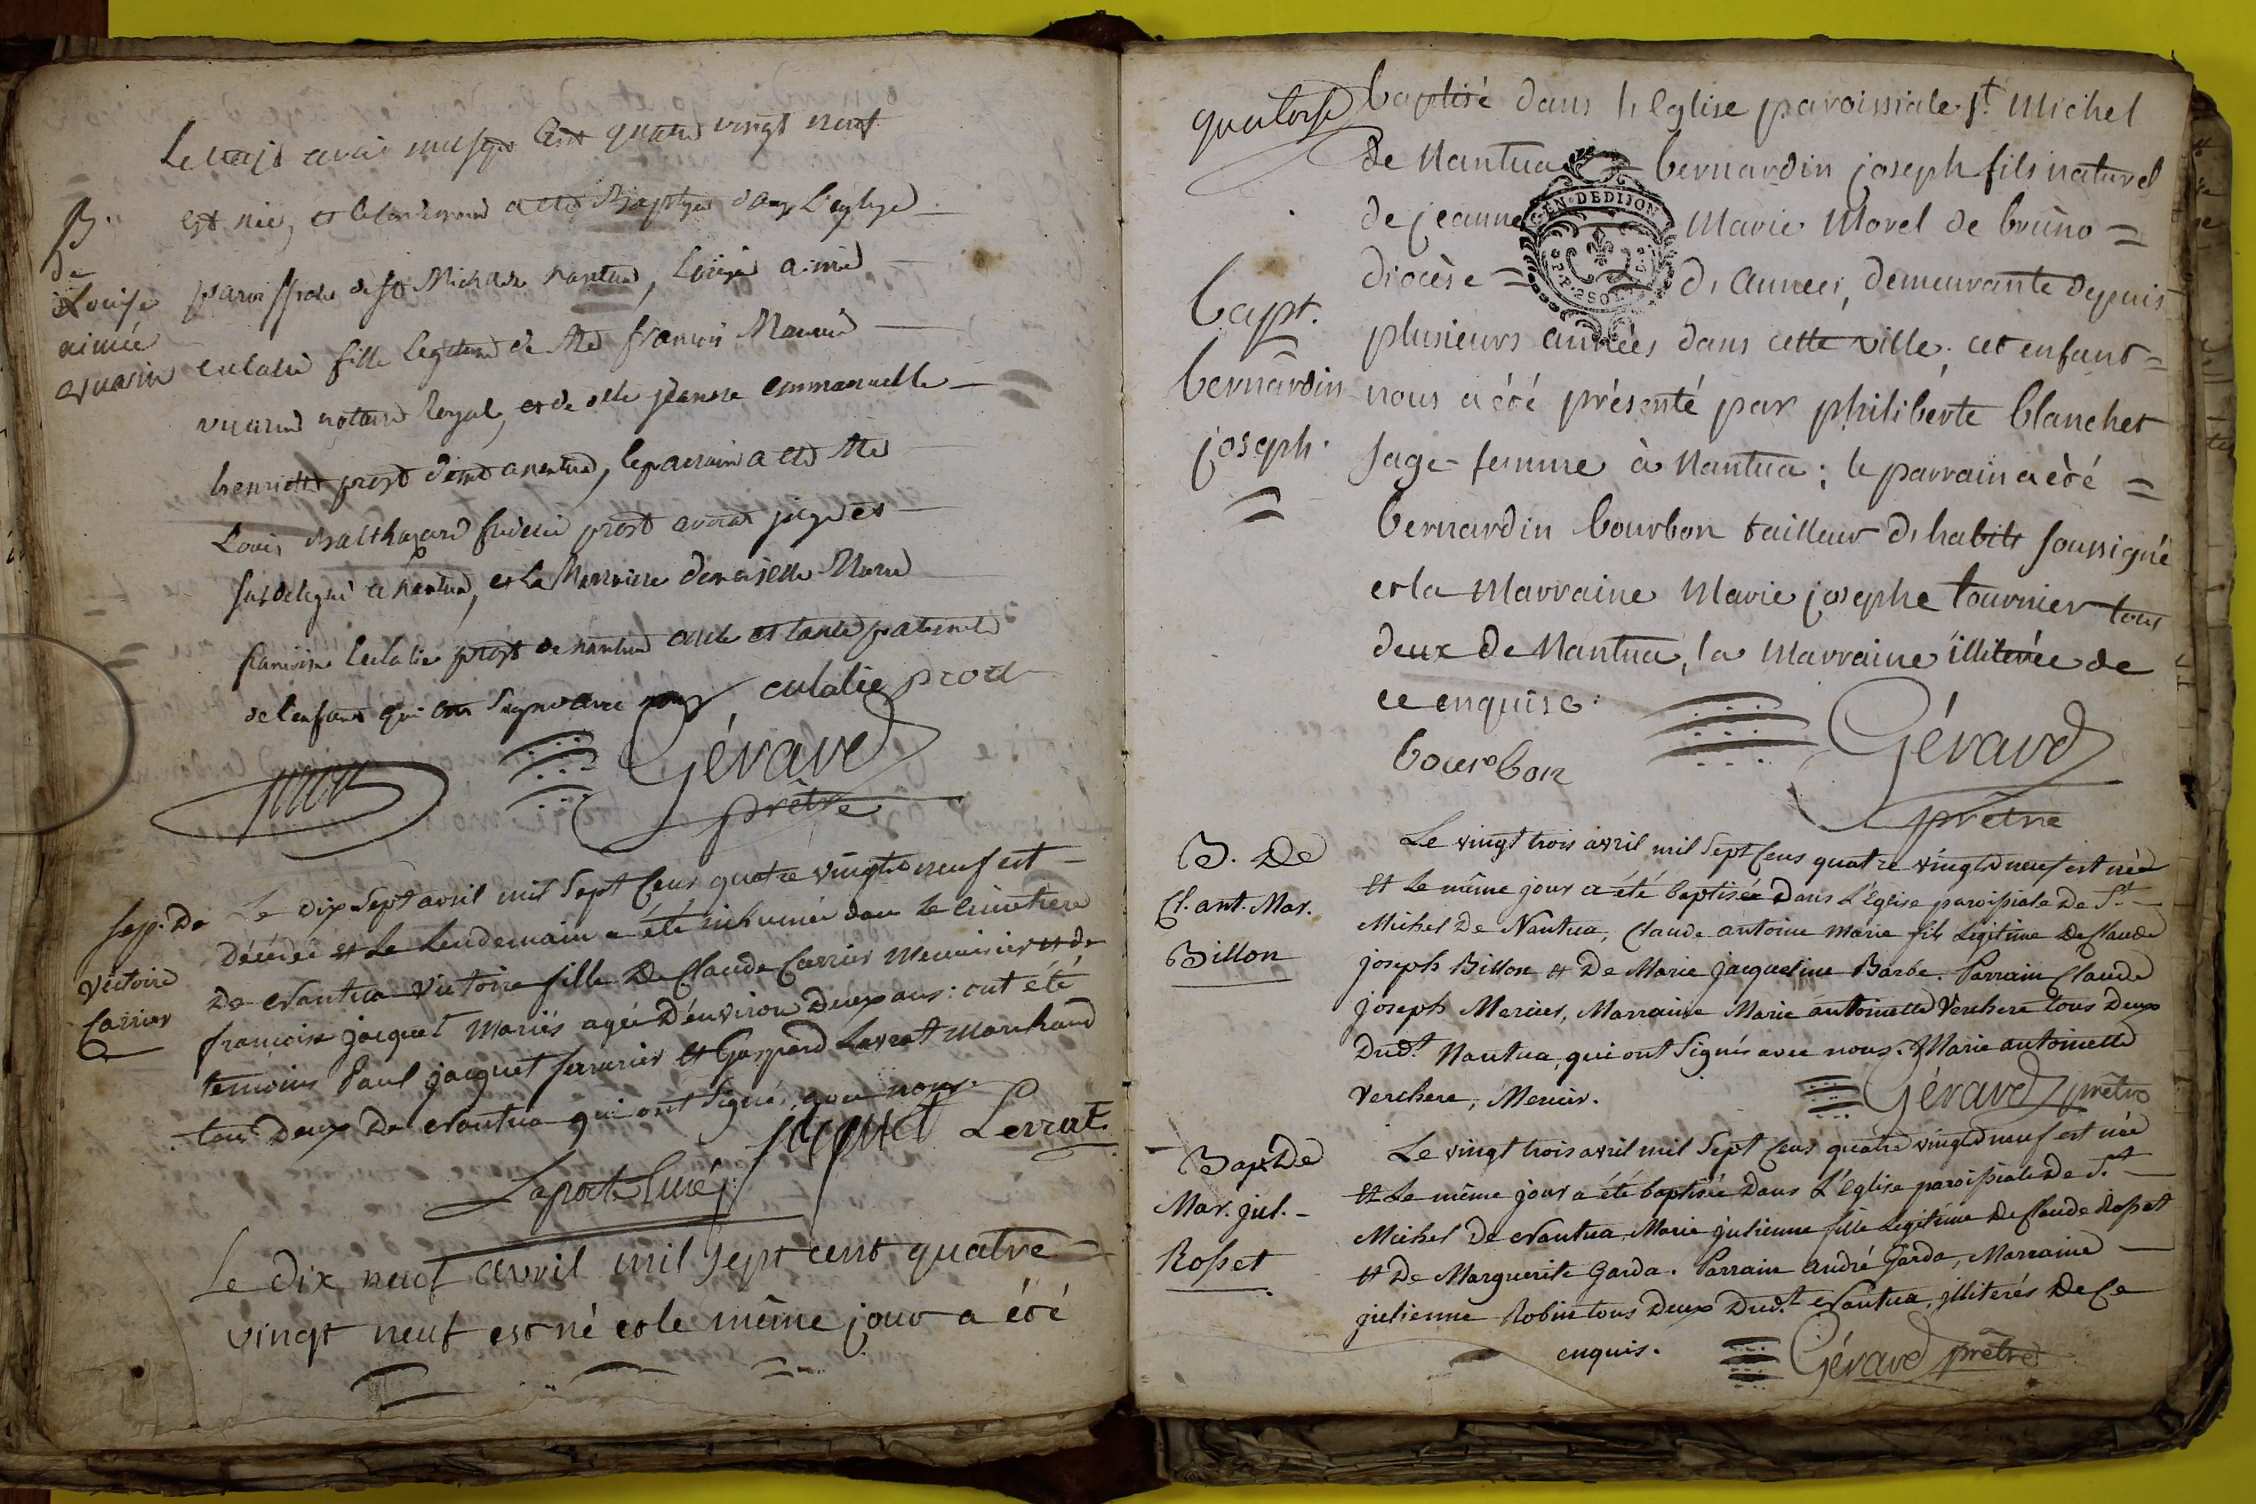 B.
de
Louise
aimée
avril mil sept cent quatre vingt neuf
est née, et le lendemain a été Baptisée dans L'eglise
paroissiale de St Michel de nantua, Louise aimée
eulalie fille Legitime de Me françois Marie
notaire Royal, et de dlle jeanne emmanuelle
henriette prost dud nantua, le parrain a été Me
Louis Balthazard prost avocat juge et
subdelegué a nantua, et la Marraine demoiselle Marie
françoise eulalie prost de nantua et tante paternelle
de l'enfant qui ont signé avec nous eulalie prost
prost
Gérard
prêtre
Sep. De
Victoire
Carrier
Le dix Sept avril mil Sept Cens quatre vingts neuf est
Décédée et Le Lendemain a été inhumée dans Le Cimetiere
De Nantua Victoire fille De Claude Carrier Menuisier et de
françoise jacquet Mariés agée D'environ Deux ans: ont été
temoins Paul jacquet serrurier et Gaspard Levrat Marchand
tous Deux De Nantua qui ont Signés avec nous.
jacquet Levrat
Laporte Curé
Le dix neuf avril mil sept cent quatre
vingt neuf est né et le même jour a été
quatorse
bapt.
bernardin
joseph.
baptisé dans l'Eglise paroissiale St Michel
de Nantua bernardin joseph fils naturel
de jeanne Marie Morel de bruno =
GEN. DE DIJON
diocèse = d'anneci, demeurante depuis
plusieurs années dans cette ville. cet enfant =
nous a été présenté par philiberte blanchet
sage-femme à Nantua; le parrain a été =
bernardin bourbon tailleur d'habits soussigné
et la Marraine Marie josephe tournier tous
deux de Nantua, la Marraine illiterée de
ce enquise.
bourbon
Gérard
prêtre
B. De
Cl. ant. Mar.
Billon
Le vingt trois avril mil Sept Cens quatre vingts neuf est née
et Le même jour a été baptisée Dans L'Eglise paroissiale De St.
Michel De Nantua, Claude antoine marie fils Legitime De Claude
joseph Billon et De Marie jacqueline Barbe. Parrain Claude
joseph Mercier, Marraine Marie antoinette Verchere tous Deux
Dud.t Nantua, qui ont Signés avec nous. Marie antoinette
Verchere, Mercier. Gérard prêtre
Bapt De
Mar. jul.
Rosset
Le vingt trois avril mil Sept Cens quatre vingts neuf est née
et Le même jour a été baptisée Dans L'Eglise paroissiale De St.
Michel De Nantua, Marie julienne fille Legitime De Claude Rosset
et De Marguerite Garda. Parrain andré Garda, Marraine
julienne Robin tous Deux Dud.t Nantua, illiterés De Ce
enquis. Gérard prêtre